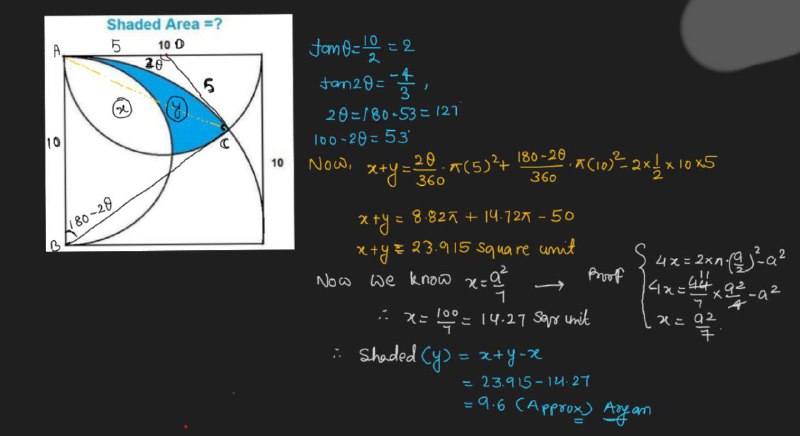 Shaded Area =?
5 10 D
A
2θ
5
x
y
C
10
10
180-2θ
B
tanθ = 10/2 = 2
tan2θ = -4/3,
2θ = 180-53 = 127°
100-2θ = 53°
Now, x+y = 2θ/360 · π(5)² + 180-2θ/360 · π(10)² - 2×1/2×10×5
x+y = 8.82π + 14.72π - 50
x+y = 23.915 square unit
Now we know x = a²/7 → Proof
4x = 2×π·(a/2)² - a²
4x = 44/7 × a²/4 - a²
11
x = a²/7
∴ x = 100/7 = 14.27 sqr unit
∴ Shaded (y) = x+y-x
= 23.915-14.27
= 9.6 (Approx) Aryan